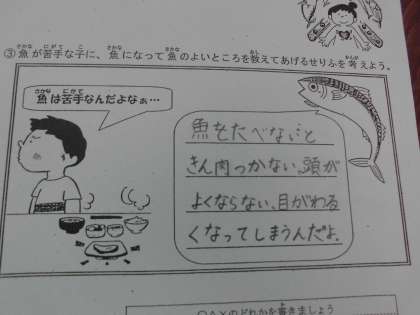 ③魚が苦手な子に、魚になって魚のよいところを教えてあげるせりふを考えよう。
魚は苦手なんだよなぁ…
魚をたべないと
きん肉つかない。頭が
よくならない、目がわる
くなってしまうんだよ。
○△×のどれかを書きましょう